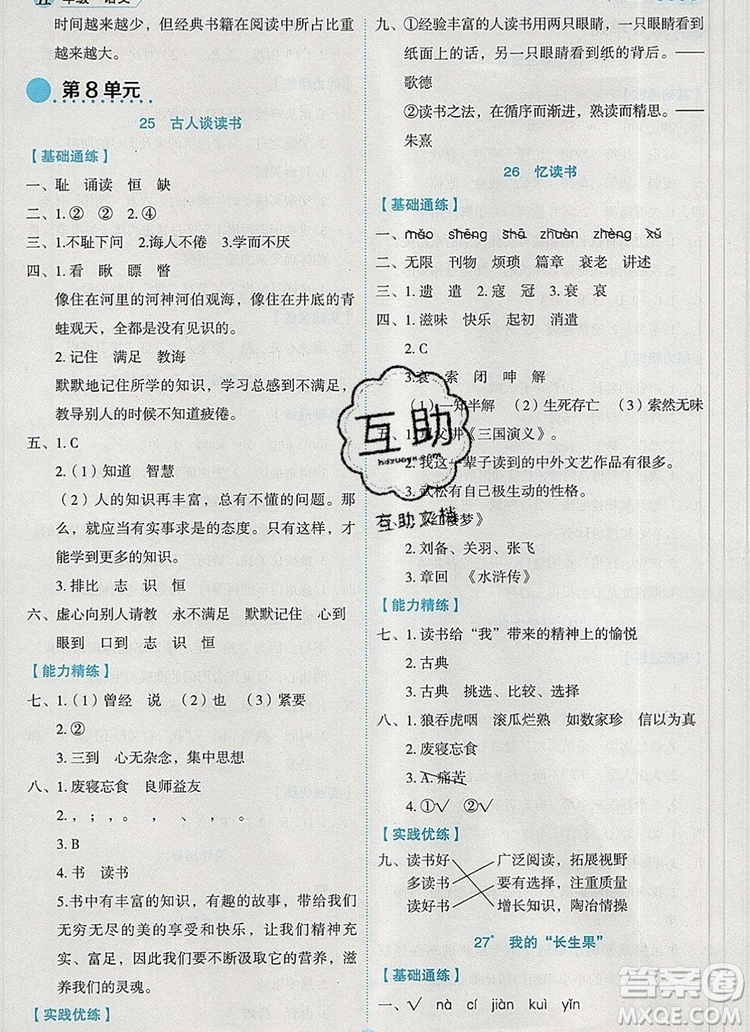 时间越来越少，但经典书籍在阅读中所占的比重
越来越大。
第8单元
25 古人谈读书
【基础通练】
一、耻 诵读 恒 缺
二、1.② ② 2.④
三、1.不耻下问 2.诲人不倦 3.学而不厌
四、1.看 瞅 瞟 瞥
像住在河里的河神河伯观海，像住在井底的青
蛙观天，全部都是没有见识的。
2.记住 满足 教诲
默默地记住所学的知识，学习总感到不满足，
教导别人的时候不知道疲倦。
五、1.C
2.（1）知道 智慧
（2）人的知识再丰富，总有不懂的问题。那
么，就应当有实事求是的态度。只有这样，才
能学到更多的知识。
3.排比 志 识 恒
六、虚心向别人请教 永不满足 默默记住 心到
眼到 口到 志 识 恒
【能力精练】
七、1.（1）曾经 说 （2）也 （3）紧要
2.②
3.三到 心无杂念，集中思想
八、1.废寝忘食 良师益友
2.，；，。， 、 ，。
3.B
4.书 读书
5.书中有丰富的知识，有趣的故事，给我们以
无穷无尽的美的享受和快乐，让我们精神充
实、富足，因此我们要不断汲取它的营养，养
护我们的灵魂。
【实践优练】
九、①经验丰富的人读书用两只眼睛，一只眼睛看到
纸面上的话，另一只眼睛看到纸的背后。——
歌德
②读书之法，在循序而渐进，熟读而精思。——
朱熹
26 忆读书
【基础通练】
一、mǎo shēng shā zhuàn zhèng xǔ
二、无限 刊物 烦琐 篇章 衰老 讲述
三、1.遗 遣 2.寇 冠 3.衰 哀
四、1.滋味 快乐 起初 消遣
2.C
3.衰 索 闭 呻 解
（1）一知半解 （2）生死存亡 （3）索然无味
五、1.舅父讲《三国演义》。
2.我这一辈子读到的中外文艺作品有很多。
3.武松有着自己极生动的性格。
《红楼梦》
2.刘备、关羽、张飞
3.章回 《水浒传》
【能力精练】
七、1.读书给“我”带来的精神上的愉悦
2.古典
3.古典 挑选、比较、选择
八、1.狼吞虎咽 滚瓜烂熟 如数家珍 信以为真
2.废寝忘食
3.A.痛苦
4.①√ ②√
【实践优练】
九、读书好 广泛阅读，拓展视野
多读书 要有选择，注重质量
读好书 增长知识，陶冶情操
27* 我的“长生果”
【基础通练】
一、√ nà cí jiàn kuì yǐn
互助
hdzuoye.com
互助文档
答案圈
MXQE.COM